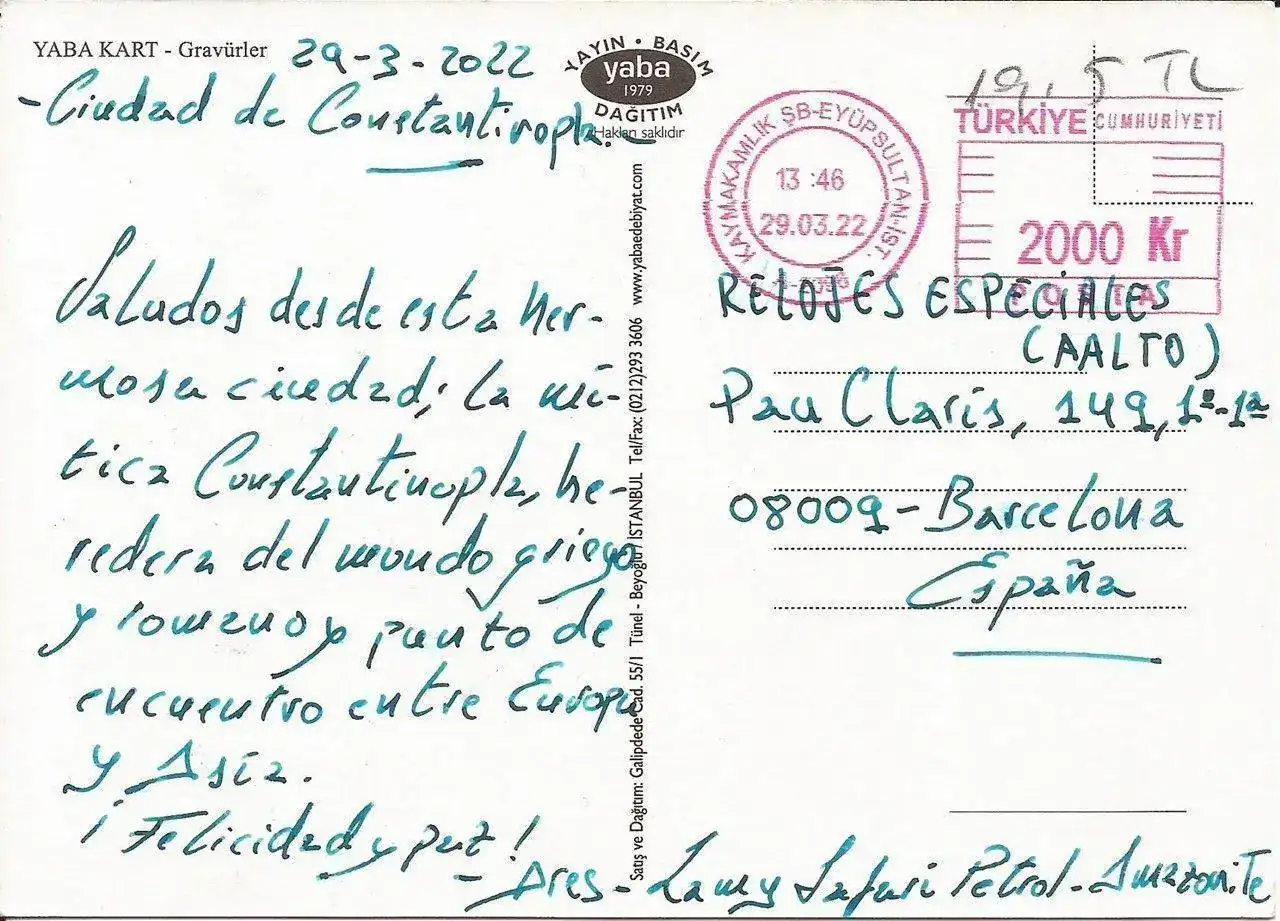 YABA KART - Gravürler
29-3-2022
YAYIN • BASIM
yaba
1979
DAĞITIM
Hakları saklıdır
- Ciudad de Constantinopla. -
Saludos desde esta her-
mosa ciudad; la mí-
tica Constantinopla, he-
redera del mundo griego
y romano y punto de
encuentro entre Europa
y Asia.
¡Felicidad y paz!
- Ares - Lamy Safari Petrol - Amazonite
Satış ve Dağıtım: Galipdede Cad. 55/1 Tünel - Beyoğlu / İSTANBUL Tel/Fax: (0212)293 3606 www.yabaedebiyat.com
19,5 TL
KAYMAKAMLIK ŞB-EYÜPSULTAN-İST.
13:46
29.03.22
TÜRKİYE CUMHURİYETİ
2000 Kr
POSTA
RELOJES ESPECIALES
(AALTO)
Pau Claris, 149, 1º-1ª
08009 - Barcelona
España